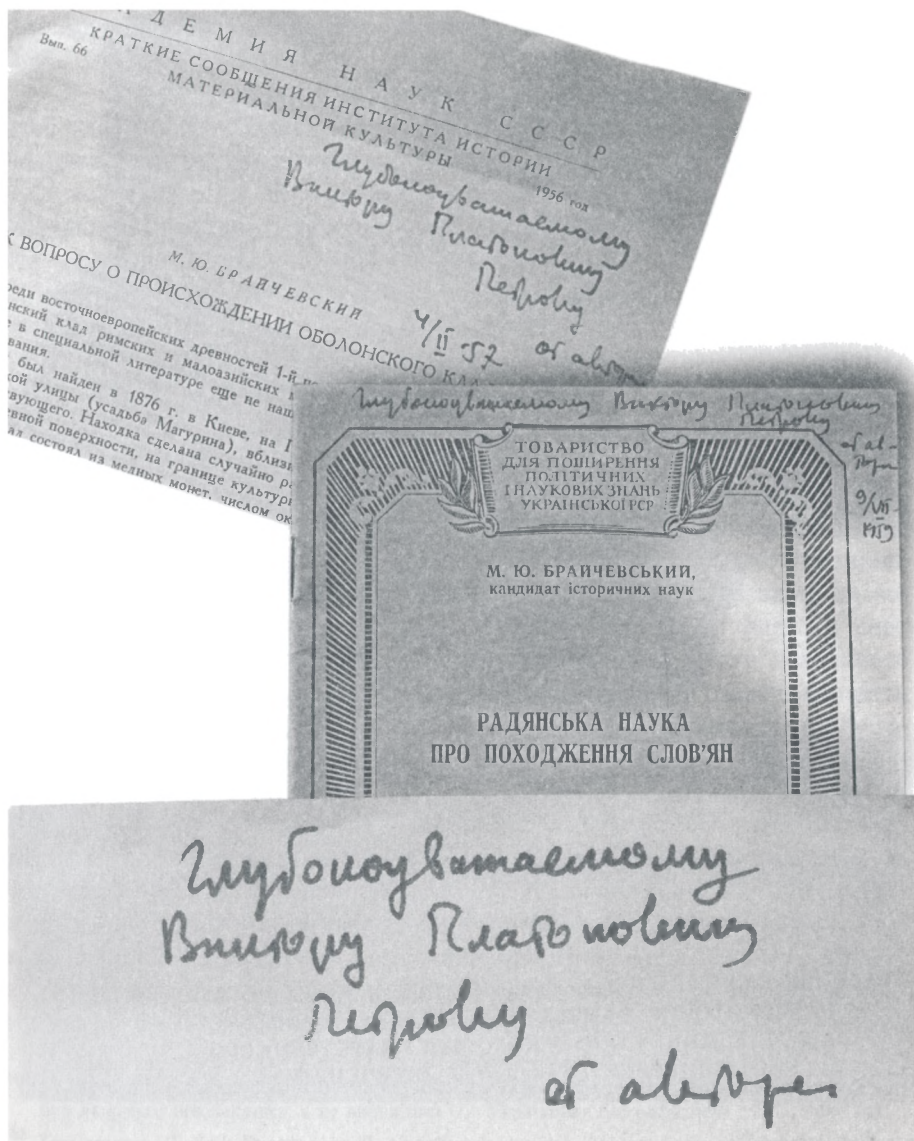 АДЕМИЯ НАУК СССР
КРАТКИЕ СООБЩЕНИЯ ИНСТИТУТА ИСТОРИИ
МАТЕРИАЛЬНОЙ КУЛЬТУРЫ
Вып. 66
1956 год
Глубокоуважаемому
Виктору Платоновичу
Петрову
4/II-57 от автора
М. Ю. БРАЙЧЕВСКИЙ
К ВОПРОСУ О ПРОИСХОЖДЕНИИ ОБОЛОНСКОГО
реди восточноевропейских древностей 1-й
нский клад римских и малоазийских
е в специальной литературе еще не наш
вания.
был найден в 1876 г. в Киеве, на
кой улицы (усадьба Магурина), вблизи
вующего. Находка сделана случайно
евной поверхности, на границе культур
состоял из медных монет, числом ок
Глубокоуважаемому Виктору Платоновичу
Петрову
от ав-
тора
9/VII-
1959
ТОВАРИСТВО
ДЛЯ ПОШИРЕННЯ
ПОЛІТИЧНИХ
І НАУКОВИХ ЗНАНЬ
УКРАЇНСЬКОЇ РСР
М. Ю. БРАЙЧЕВСЬКИЙ,
кандидат історичних наук
РАДЯНСЬКА НАУКА
ПРО ПОХОДЖЕННЯ СЛОВ'ЯН
Глубокоуважаемому
Виктору Платоновичу
Петрову
от автора